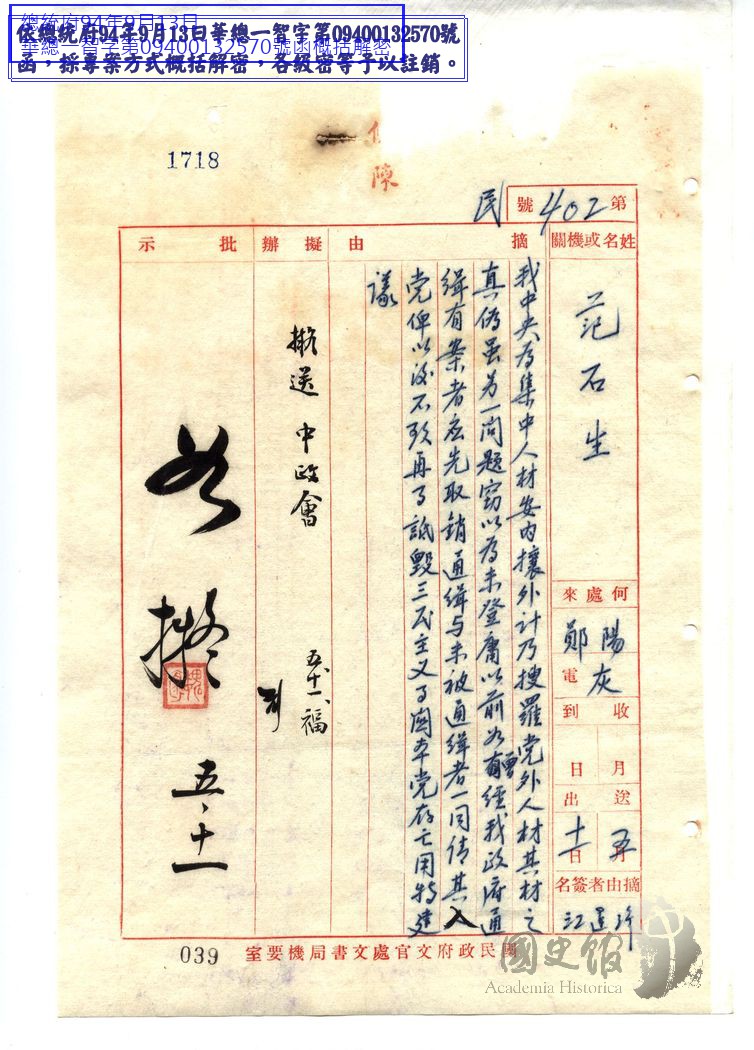 總統府94年9月13日
華總一智字第09400132570號函概括解密
依總統府94年9月13日華總一智字第09400132570號
函，採專案方式概括解密，各級密等予以註銷。
1718
陳
民
第402號
姓名或機關
范石生
何處來
鄖陽
電
灰
收到
月
日
送出
五月
十一日
摘由者簽名
江
摘由
我中央為集中人材安內攘外計乃搜羅党外人材其材之
真偽虽另一問題窃以為未登庸以前如有曾經我政府通
緝有案者应先取銷通緝与未被通緝者一同倩其入
党俾以後不致再有詆毀三民主义有関本党存亡用特建
議
擬辦
擬送 中政會
五、十一、福
批示
如擬
五、十一
國民政府文官處文書局機要室
039
國史館
Academia Historica